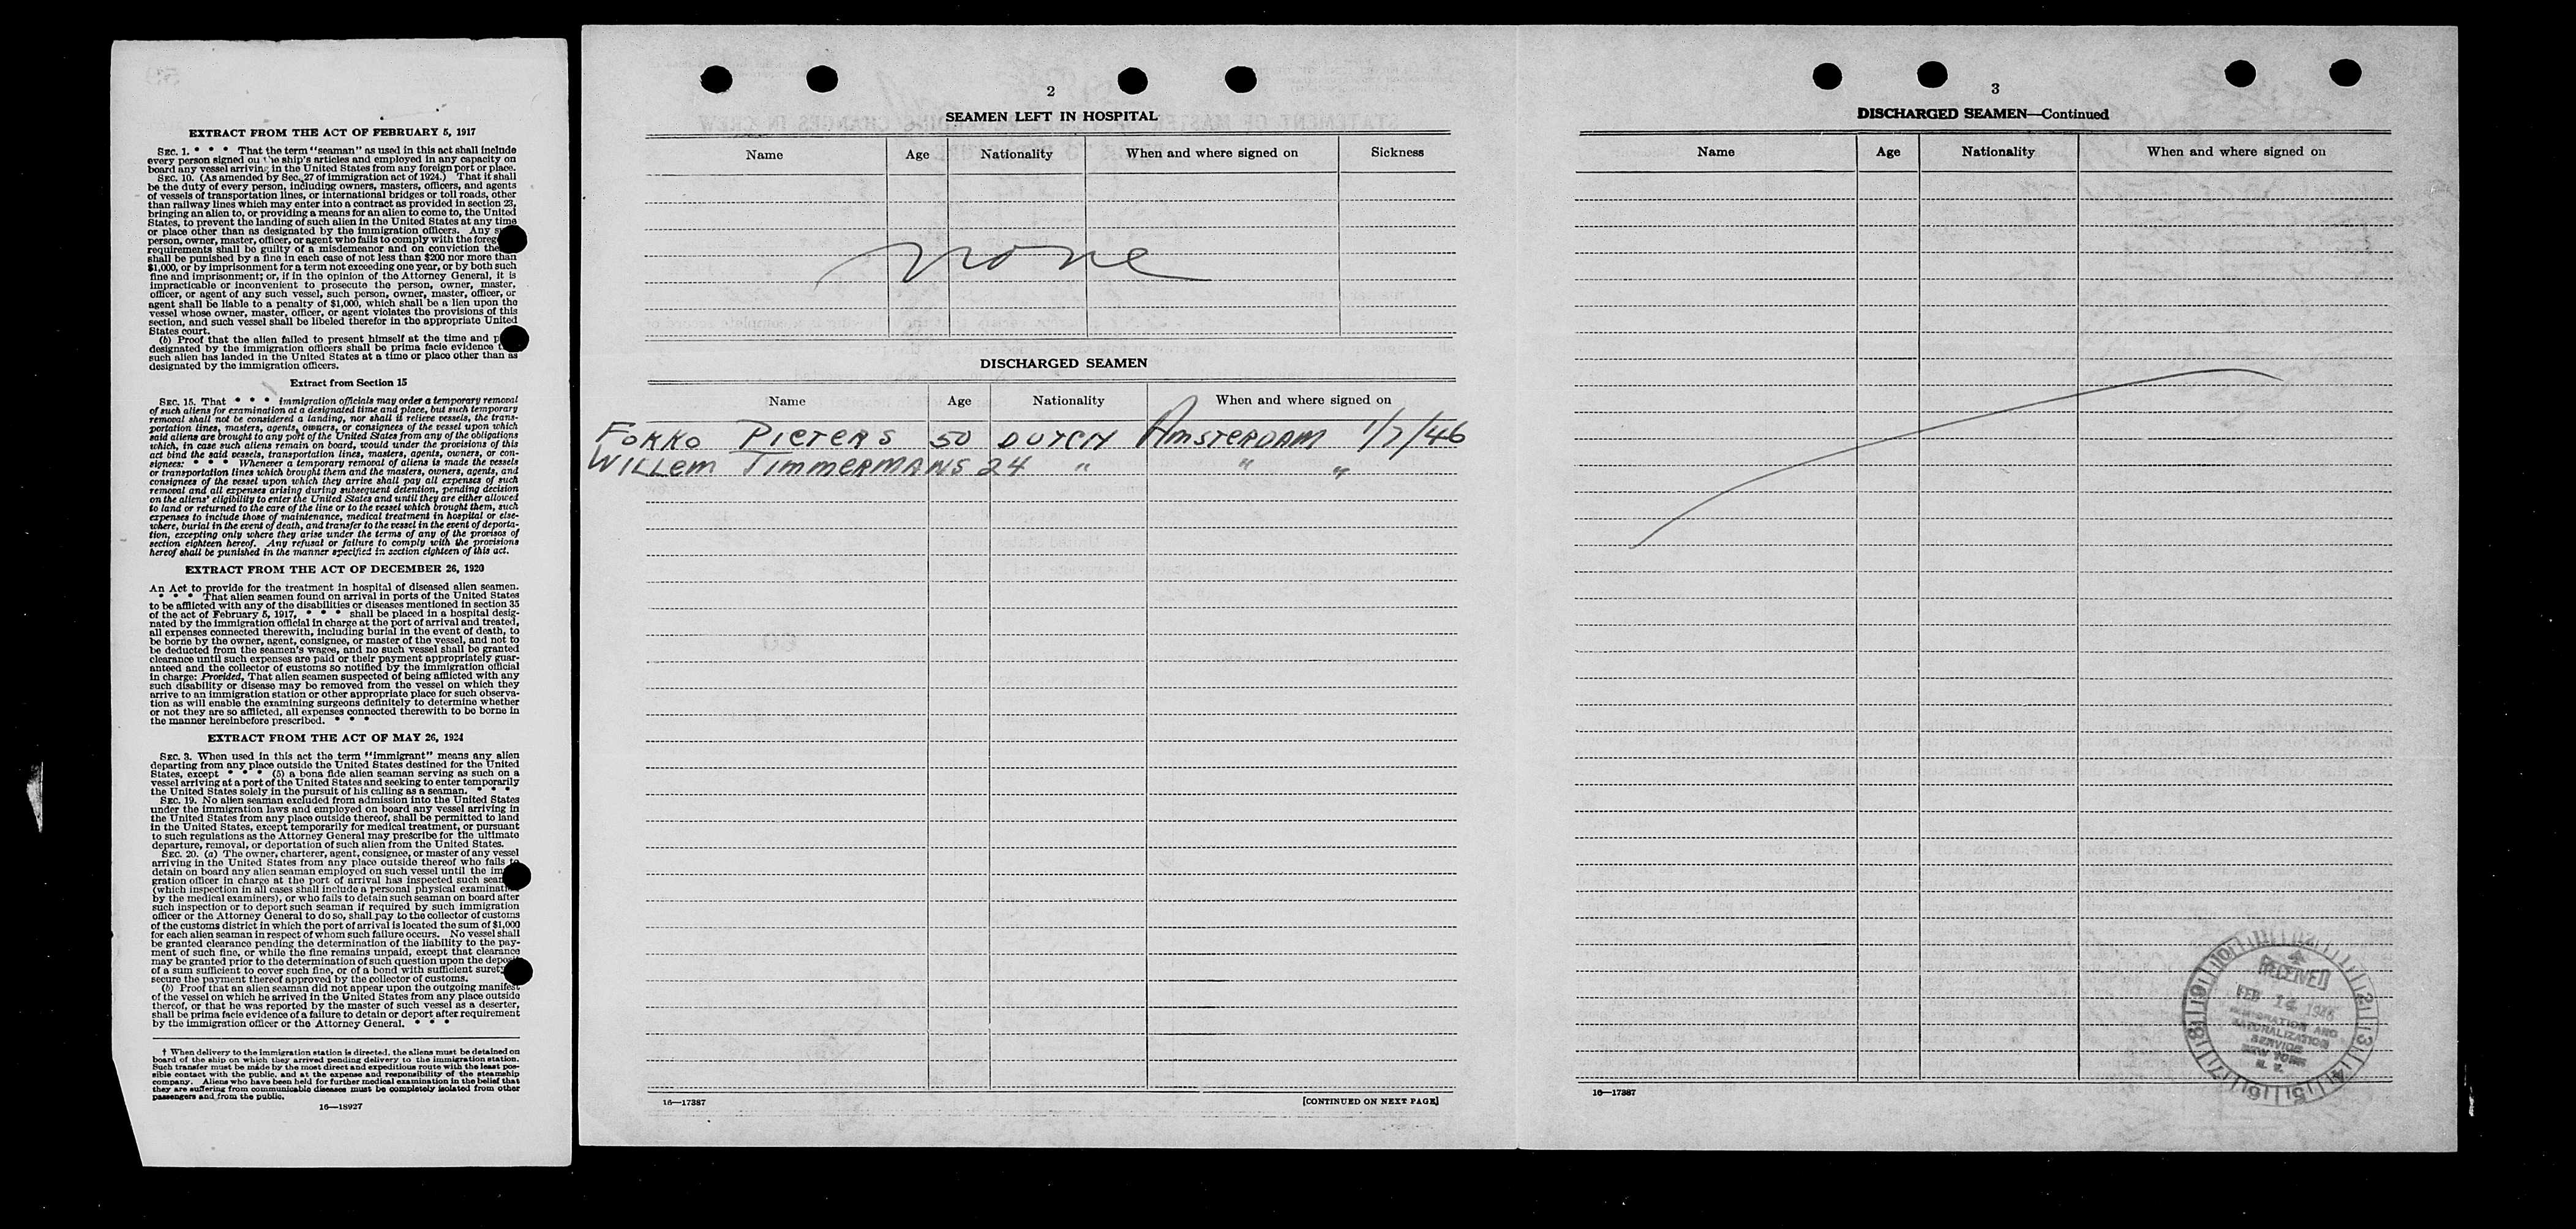 EXTRACT FROM THE ACT OF FEBRUARY 5, 1917
SEC. 1. * * * That the term "seaman" as used in this act shall include
every person signed on the ship's articles and employed in any capacity on
board any vessel arriving in the United States from any foreign port or place.
SEC. 10. (As amended by Sec. 27 of immigration act of 1924.) That it shall
be the duty of every person, including owners, masters, officers, and agents
of vessels of transportation lines, or international bridges or toll roads, other
than railway lines which may enter into a contract as provided in section 23,
bringing an alien to, or providing a means for an alien to come to, the United
States, to prevent the landing of such alien in the United States at any time
or place other than as designated by the immigration officers. Any
person, owner, master, officer, or agent who fails to comply with the foreg
requirements shall be guilty of a misdemeanor and on conviction the
shall be punished by a fine in each case of not less than $200 nor more than
$1,000, or by imprisonment for a term not exceeding one year, or by both such
fine and imprisonment; or, if in the opinion of the Attorney General, it is
impracticable or inconvenient to prosecute the person, owner, master,
officer, or agent of any such vessel, such person, owner, master, officer, or
agent shall be liable to a penalty of $1,000, which shall be a lien upon the
vessel whose owner, master, officer, or agent violates the provisions of this
section, and such vessel shall be libeled therefor in the appropriate United
States court.
(b) Proof that the alien failed to present himself at the time and p
designated by the immigration officers shall be prima facie evidence
such alien has landed in the United States at a time or place other than as
designated by the immigration officers.
Extract from Section 15
SEC. 15. That * * * immigration officials may order a temporary removal
of such aliens for examination at a designated time and place, but such temporary
removal shall not be considered a landing, nor shall it relieve vessels, the trans-
portation lines, masters, agents, owners, or consignees of the vessel upon which
said aliens are brought to any port of the United States from any of the obligations
which, in case such aliens remain on board, would under the provisions of this
act bind the said vessels, transportation lines, masters, agents, owners, or con-
signees: * * * Whenever a temporary removal of aliens is made the vessels
or transportation lines which brought them and the masters, owners, agents, and
consignees of the vessel upon which they arrive shall pay all expenses of such
removal and all expenses arising during subsequent detention, pending decision
on the aliens' eligibility to enter the United States and until they are either allowed
to land or returned to the care of the line or to the vessel which brought them, such
expenses to include those of maintenance, medical treatment in hospital or else-
where, burial in the event of death, and transfer to the vessel in the event of deporta-
tion, excepting only where they arise under the terms of any of the provisos of
section eighteen hereof. Any refusal or failure to comply with the provisions
hereof shall be punished in the manner specified in section eighteen of this act.
EXTRACT FROM THE ACT OF DECEMBER 26, 1920
An Act to provide for the treatment in hospital of diseased alien seamen.
* * * That alien seamen found on arrival in ports of the United States
to be afflicted with any of the disabilities or diseases mentioned in section 35
of the act of February 5, 1917, * * * shall be placed in a hospital desig-
nated by the immigration official in charge at the port of arrival and treated,
all expenses connected therewith, including burial in the event of death, to
be borne by the owner, agent, consignee, or master of the vessel, and not to
be deducted from the seamen's wages, and no such vessel shall be granted
clearance until such expenses are paid or their payment appropriately guar-
anteed and the collector of customs so notified by the immigration official
in charge: Provided, That alien seamen suspected of being afflicted with any
such disability or disease may be removed from the vessel on which they
arrive to an immigration station or other appropriate place for such observa-
tion as will enable the examining surgeons definitely to determine whether
or not they are so afflicted, all expenses connected therewith to be borne in
the manner hereinbefore prescribed. * * *
EXTRACT FROM THE ACT OF MAY 26, 1924
SEC. 3. When used in this act the term "immigrant" means any alien
departing from any place outside the United States destined for the United
States, except * * * (5) a bona fide alien seaman serving as such on a
vessel arriving at a port of the United States and seeking to enter temporarily
the United States solely in the pursuit of his calling as a seaman. * * *
SEC. 19. No alien seaman excluded from admission into the United States
under the immigration laws and employed on board any vessel arriving in
the United States from any place outside thereof, shall be permitted to land
in the United States, except temporarily for medical treatment, or pursuant
to such regulations as the Attorney General may prescribe for the ultimate
departure, removal, or deportation of such alien from the United States.
SEC. 20. (a) The owner, charterer, agent, consignee, or master of any vessel
arriving in the United States from any place outside thereof who fails to
detain on board any alien seaman employed on such vessel until the im
gration officer in charge at the port of arrival has inspected such sea
(which inspection in all cases shall include a personal physical examinat
by the medical examiners), or who fails to detain such seaman on board after
such inspection or to deport such seaman if required by such immigration
officer or the Attorney General to do so, shall pay to the collector of customs
of the customs district in which the port of arrival is located the sum of $1,000
for each alien seaman in respect of whom such failure occurs. No vessel shall
be granted clearance pending the determination of the liability to the pay-
ment of such fine, or while the fine remains unpaid, except that clearance
may be granted prior to the determination of such question upon the deposit
of a sum sufficient to cover such fine, or of a bond with sufficient surety
secure the payment thereof approved by the collector of customs.
(b) Proof that an alien seaman did not appear upon the outgoing manifest
of the vessel on which he arrived in the United States from any place outside
thereof, or that he was reported by the master of such vessel as a deserter,
shall be prima facie evidence of a failure to detain or deport after requirement
by the immigration officer or the Attorney General. * * *
† When delivery to the immigration station is directed, the aliens must be detained on
board of the ship on which they arrived pending delivery to the immigration station.
Such transfer must be made by the most direct and expeditious route with the least pos-
sible contact with the public, and at the expense and responsibility of the steamship
company. Aliens who have been held for further medical examination in the belief that
they are suffering from communicable diseases must be completely isolated from other
passengers and from the public.
16—18927
2
SEAMEN LEFT IN HOSPITAL
Name Age Nationality When and where signed on Sickness
none
DISCHARGED SEAMEN
Name Age Nationality When and where signed on
FOKKO PIETERS 50 DUTCH AMSTERDAM 1/7/46
WILLEM TIMMERMANS 24 " " "
16—17387 [CONTINUED ON NEXT PAGE]
3
DISCHARGED SEAMEN—Continued
Name Age Nationality When and where signed on
RECEIVED
FEB 14 1946
IMMIGRATION AND
NATURALIZATION
SERVICE
NEW YORK
N. Y.
16—17387